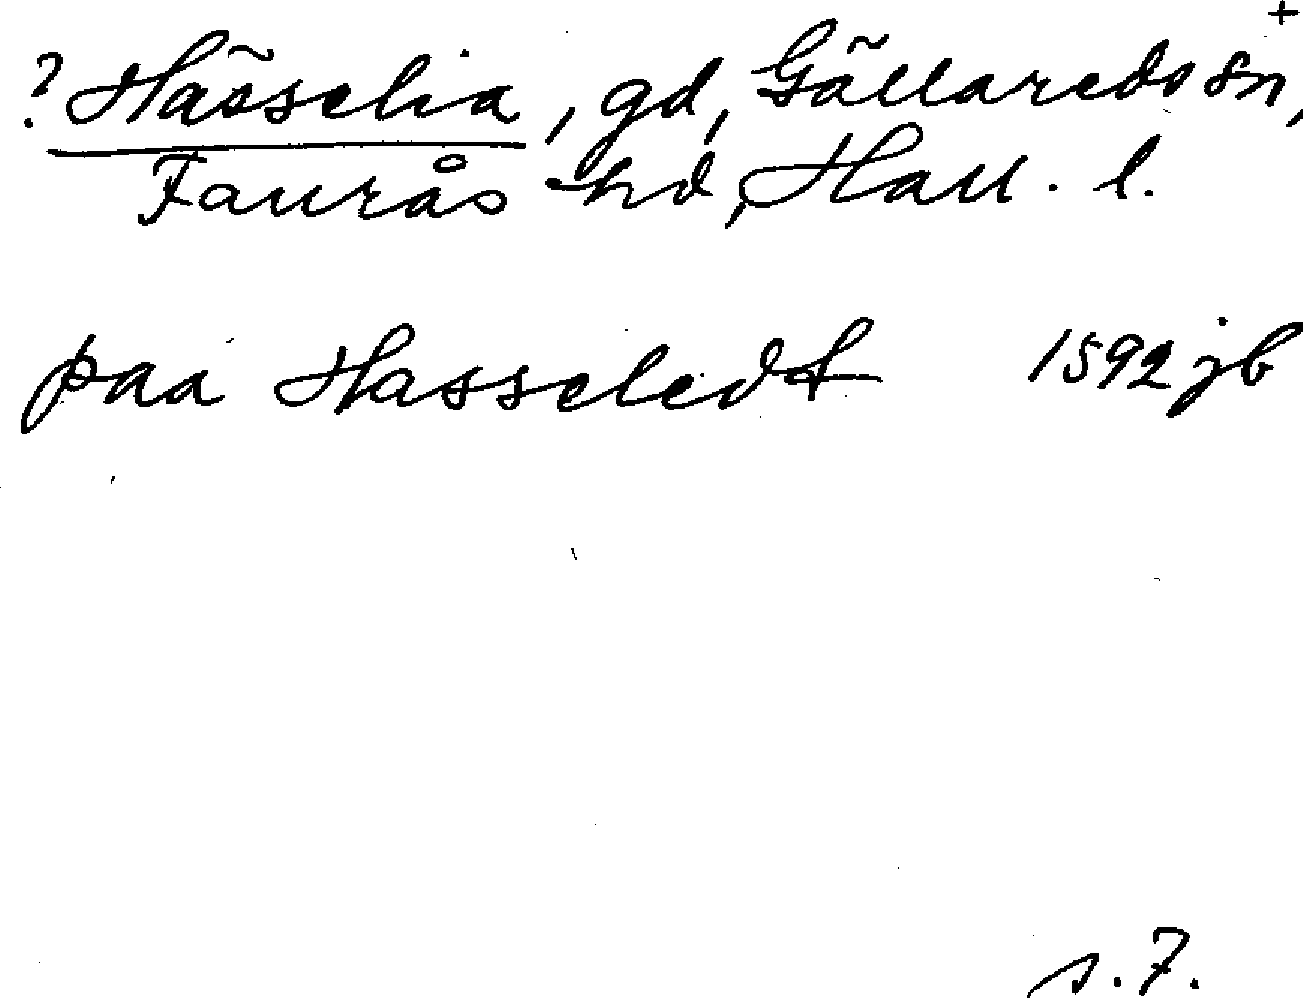 +
? Hässelia, gd, Gällareds sn,
Faurås hd, Hall. l.
paa Hasseledt 1592 jb
s. 7.